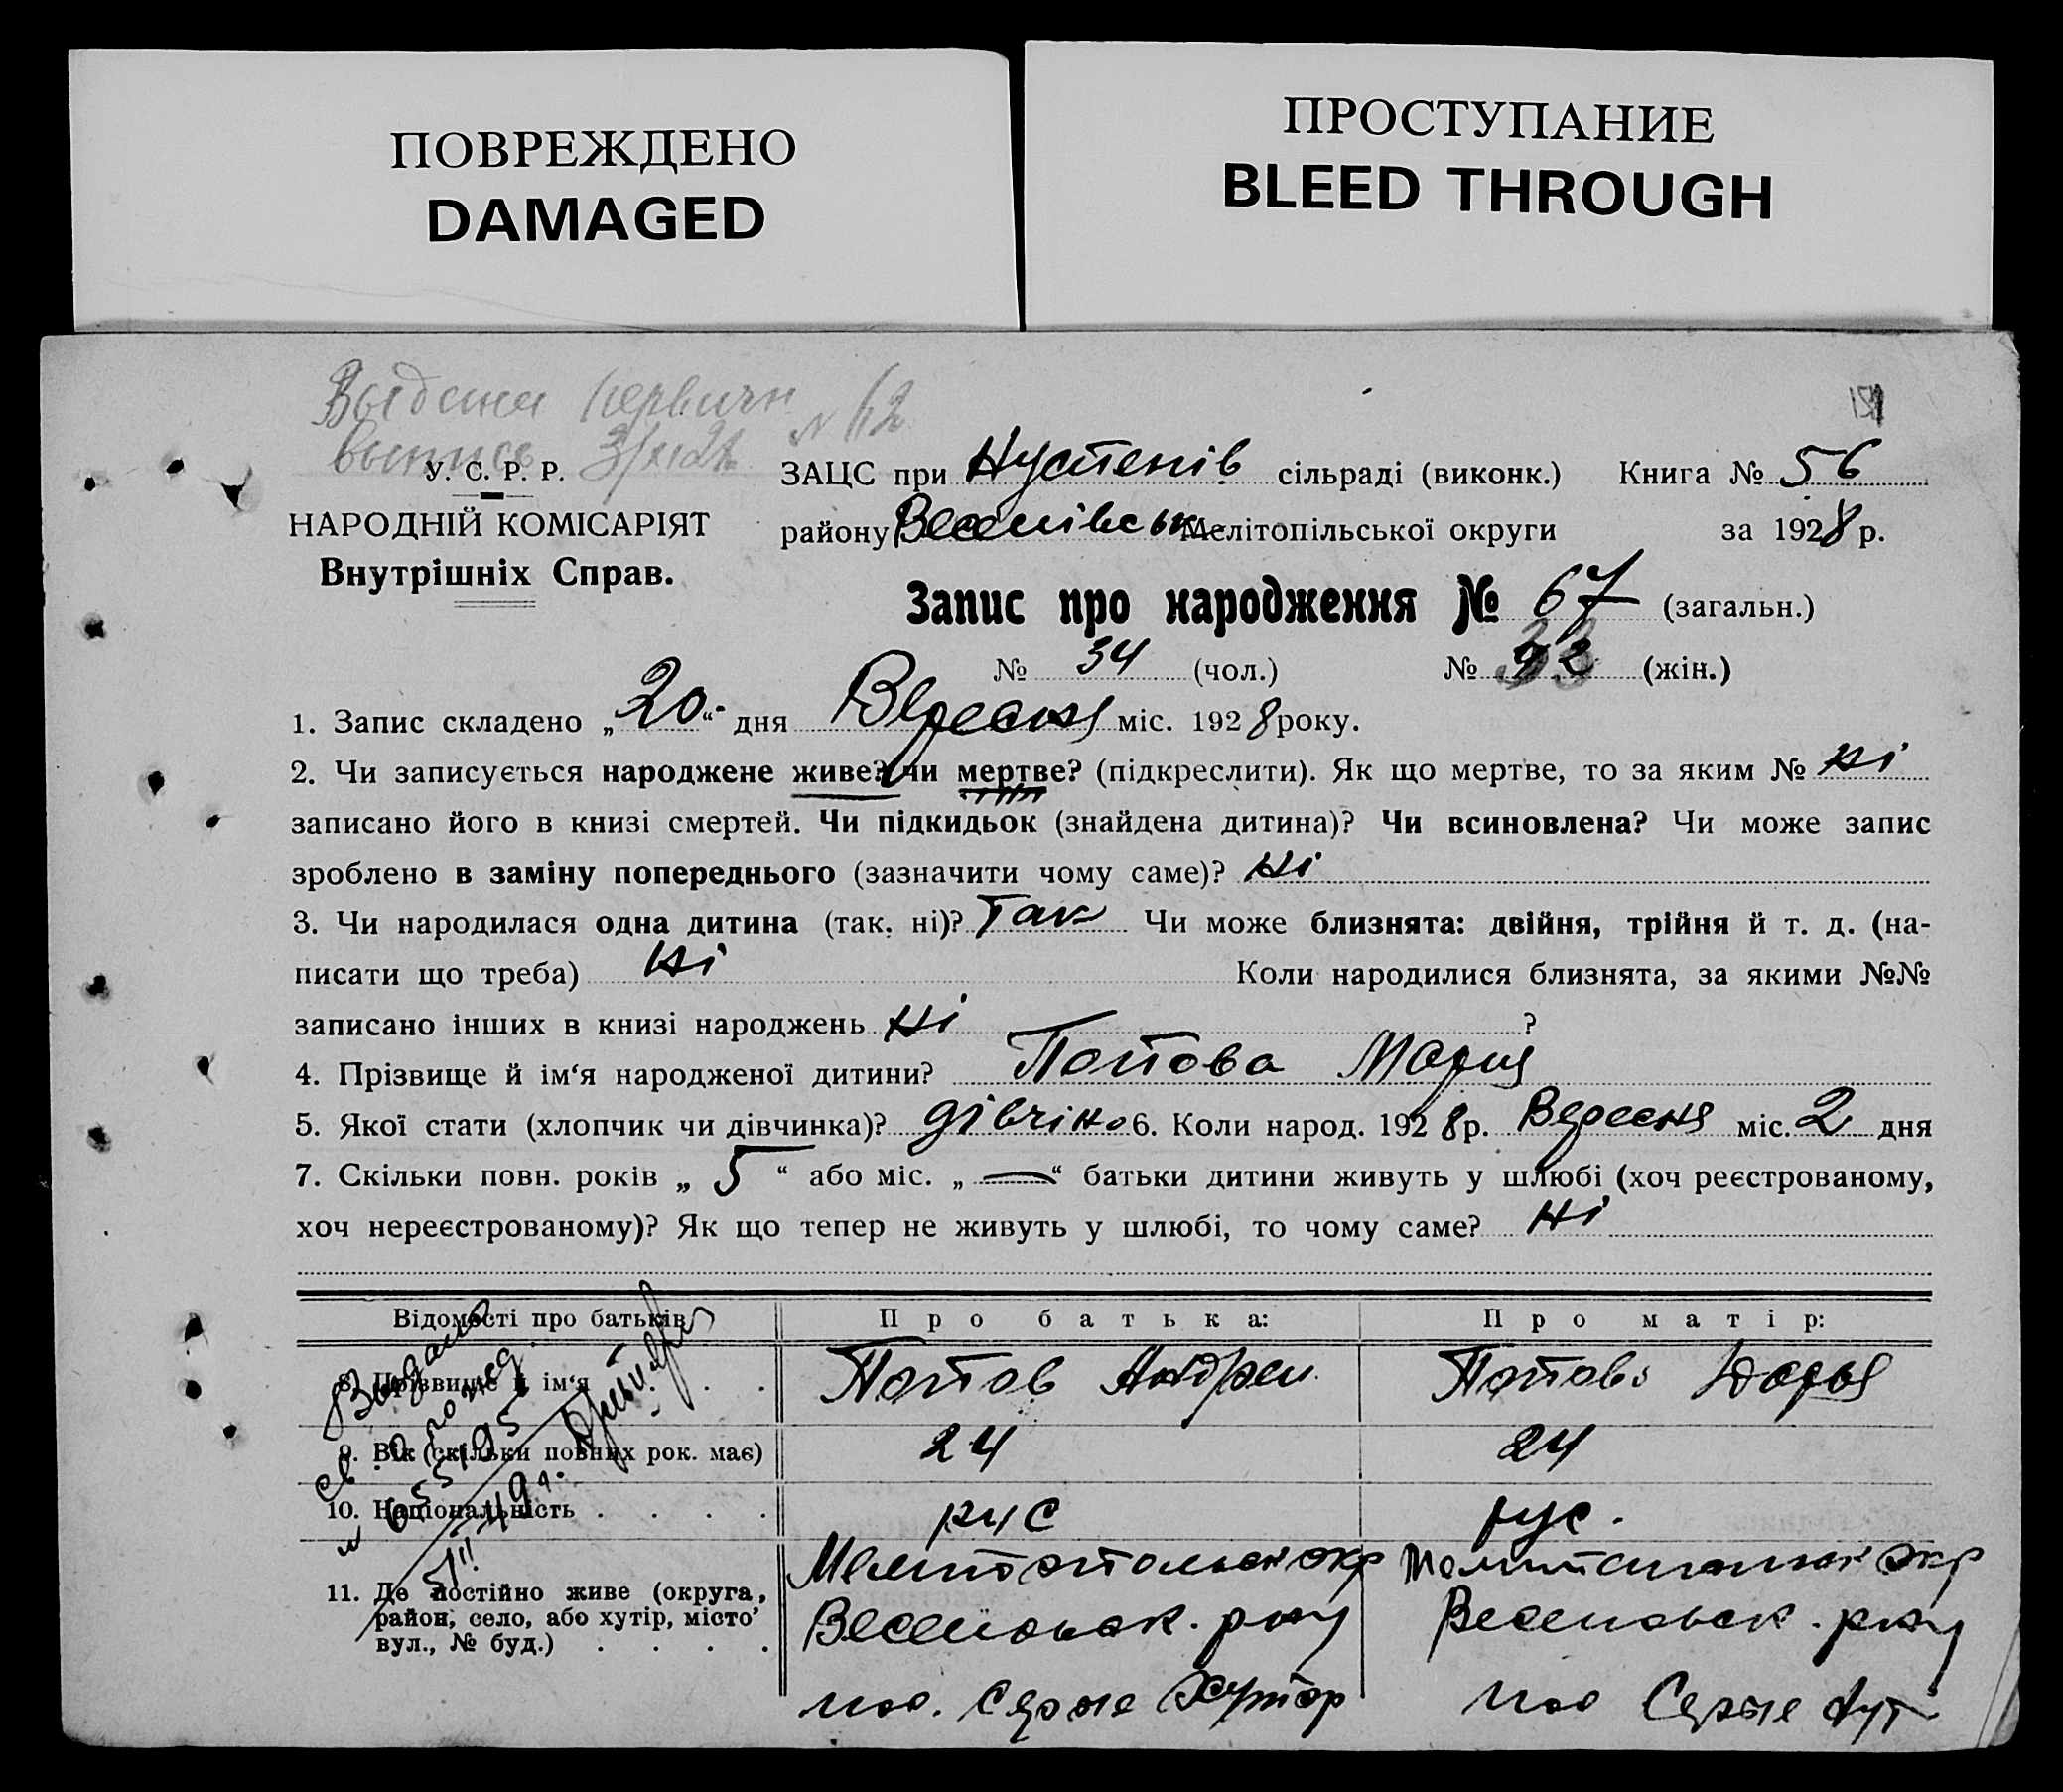 ПОВРЕЖДЕНО
DAMAGED
ПРОСТУПАНИЕ
BLEED THROUGH
Выдана первичн
выпись № 62
У. С. Р. Р.
НАРОДНІЙ КОМІСАРІЯТ
Внутрішніх Справ.
ЗАЦС при сільраді (виконк.) Книга № 56
району Веселівськ Мелітопільської округи за 1928 р.
Запис про народження № 67 (загальн.)
№ 34 (чол.) № (жін.)
1. Запис складено „20“ дня Вересня міс. 1928 року.
2. Чи записується народжене живе? чи мертве? (підкреслити). Як що мертве, то за яким № Ні
записано його в книзі смертей. Чи підкидьок (знайдена дитина)? Чи всиновлена? Чи може запис
зроблено в заміну попереднього (зазначити чому саме)? Ні
3. Чи народилася одна дитина (так, ні)? Так Чи може близнята: двійня, трійня й т. д. (на-
писати що треба) Ні Коли народилися близнята, за якими №№
записано інших в книзі народжень Ні ?
4. Прізвище й ім‘я народженої дитини? Попова Мария
5. Якої стати (хлопчик чи дівчинка)? дівчіна 6. Коли народ. 1928 р. Вересня міс. 2 дня
7. Скільки повн. років „ 5 “ або міс. „ — “ батьки дитини живуть у шлюбі (хоч реєстрованому,
хоч нереєстрованому)? Як що тепер не живуть у шлюбі, то чому саме? Ні
Відомості про батьків Про батька: Про матір:
8. Прізвище й ім‘я . . . Попов Андреи Попова Дарья
9. Вік (скільки повних рок. має) 24 24
10. Національність . . . . рус рус.
11. Де постійно живе (округа,
район, село, або хутір, місто
вул., № буд.) . . . .
Мелитопольск окр Мелитопольск окр
Веселовск. р-ну Веселовск. р-ну
Хутор
Выдано
св. о рожд.